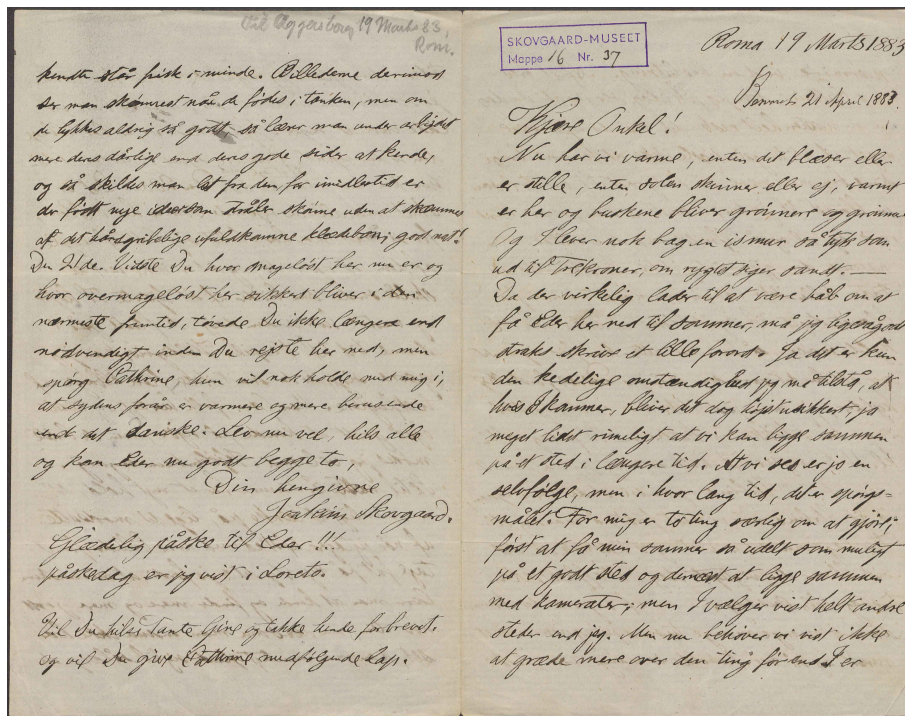 Til Aggersborg 19 Marts 83,
Rom.
kendte står frisk i minde. Billederne derimod
ser man skønnest når de fødes i tanken, men om
de lykkes aldrig så godt, så lærer man under arbejdet
mere deres dårlige end deres gode sider at kende,
og så skilles man let fra dem for imidlertid er
der født nye ideer som stråler skønne uden at skæmmes
af det håndgribelige ufuldkomne klædebon; god nat!
Den 21de. Vidste Du hvor mageløst her nu er og
hvor overmageløst her sikkert bliver i den
nærmeste fremtid, tøvede Du ikke længere end
nødvendigt inden Du rejste her ned, men
spørg Cathrine, hun vil nok holde med mig i,
at sydens forår er varmere og mere berusende
end det danske. Lev nu vel, hils alle
og kom Eder nu godt begge to,
Din hengivne
Joakim Skovgaard.
Glædelig påske til Eder!!!
påskedag er jeg vist i Loreto.
Vil Du hilse Tante Gine og takke hende for brevet.
og vil Du give Cathrine medfølgende Lap.
SKOVGAARD-MUSEET
Mappe 16 Nr. 37
Roma 19 Marts 1883
21 April 1883.
Kjære Onkel!
Nu har vi varme, enten det blæser eller
er stille, enten solen skinner eller ej, varmt
er her og buskene bliver grønnere og grønnere
Og I lever nok bag en ismur så tyk som
ud til Trekroner, om rygtet siger sandt. —
Da der virkelig lader til at være håb om at
få Eder her ned til sommer, må jeg ligesågodt
straks skrive et lille forord. Ja det er kun
den kedelige omstændighed jeg må tilstå, at
hvis I kommer, bliver det dog højst usikkert, ja
meget lidet rimeligt at vi kan ligge sammen
på et sted i længere tid. At vi ses er jo en
selvfølge, men i hvor lang tid, det er spørgs-
målet. For mig er to ting særlig om at gjøre;
først at få min sommer så udelt som muligt
på et godt sted og dernæst at ligge sammen
med kamerater; men I vælger vist helt andre
steder end jeg. Men nu behøver vi vist ikke
at græde mere over den ting før end I er